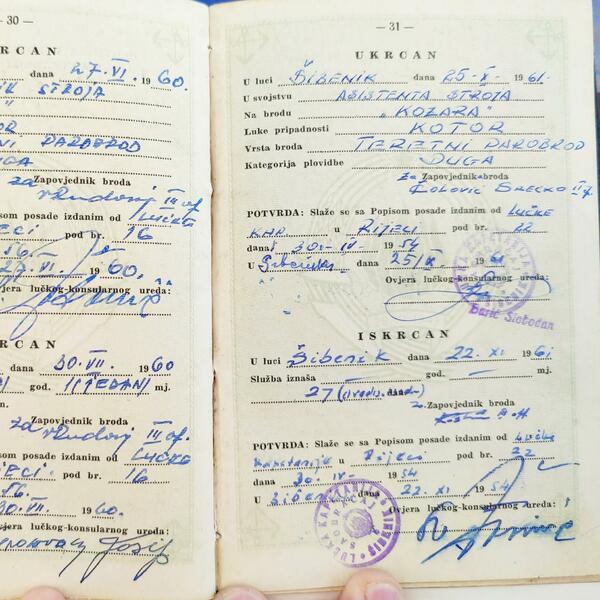 — 30 —
RCAN
dana 27. VI. 1960.
STROJA
"
OR
NI PARABROD
GA
Zapovjednik broda
za III of.
isom posade izdanim od LUČKE
JECI pod br. 16
56.
27. VI 1960.
jera lučkog-konzularnog ureda:
RCAN
dana 30. VII. 1960
god. 1 (JEDAN) mj.
n.
Zapovjednik broda
za III of.
som posade izdanim od LUČKE
JECI pod br. 16
56.
30. VII. 1960.
vjera lučkog-konsularnog ureda:
Josip
— 31 —
UKRCAN
U luci ŠIBENIK dana 25-X-1961.
U svojstvu ASISTENTA STROJA
Na brodu „KOZARA"
Luke pripadnosti KOTOR
Vrsta broda TERETNI PAROBROD
Kategorija plovidbe DUGA
Za Zapovjednik broda
SREĆKO II
POTVRDA: Slaže se sa Popisom posade izdanim od LUČKE
KAP. u RIJECI pod br. 22
dana 30.-IV- 1954
U Šibeniku dana 25/X 1961
Ovjera lučkog-konsularnog ureda:
Barić Slobodan
ISKRCAN
U luci Šibenik dana 22. XI 1961
Služba iznaša god. — mj.
27 (dana)
za Zapovjednik broda
POTVRDA: Slaže se sa Popisom posade izdanim od Lučke
Kapetanije u Rijeci pod br. 22
dana 30. IV- 1954
U Šibeniku dana 22. XI 1954
Ovjera lučkog-konsularnog ureda:
LUČKA KAPETANIJA • ŠIBENIK